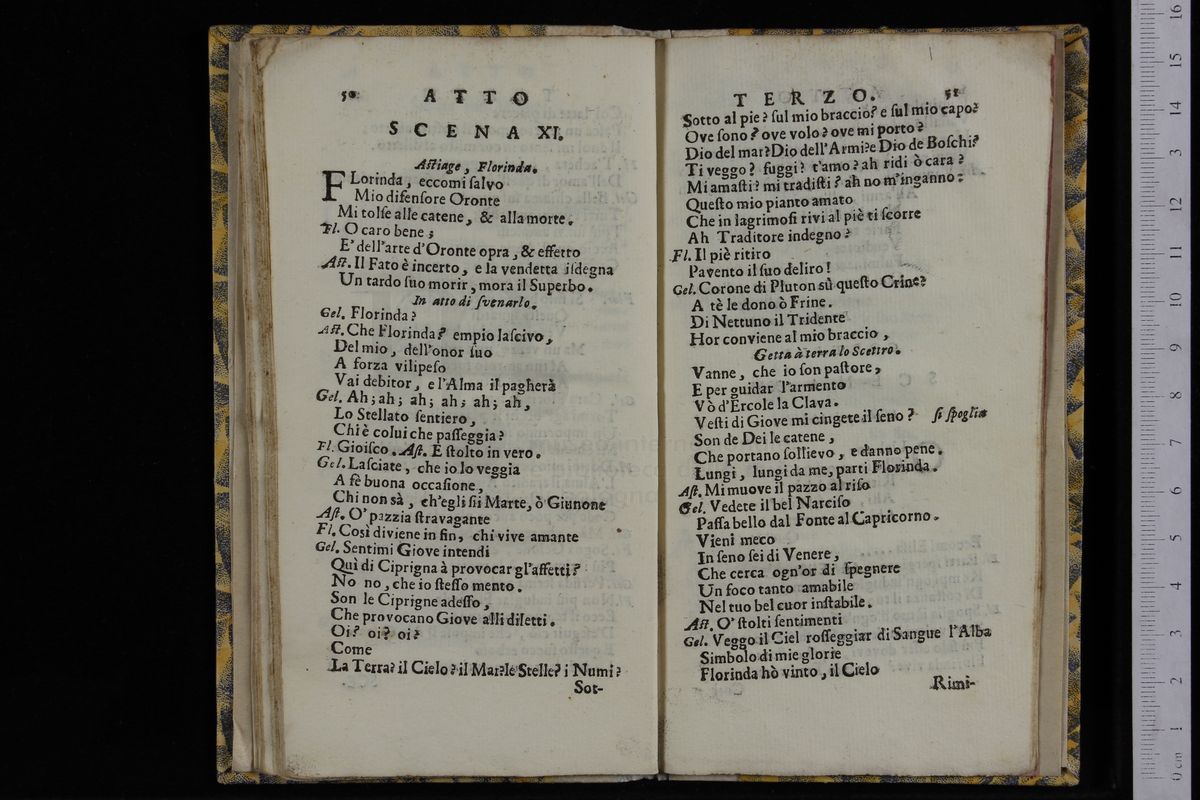 50 ATTO
SCENA XI.
Astiage, Florinda.
FLorinda, eccomi salvo
Mio difensore Oronte
Mi tolse alle catene, & alla morte.
Fl. O caro bene;
E' dell'arte d'Oronte opra, & effetto
Ast. Il Fato è incerto, e la vendetta isdegna
Un tardo suo morir, mora il Superbo.
In atto di svenarlo.
Gel. Florinda?
Ast. Che Florinda? empio lascivo,
Del mio, dell'onor suo
A forza vilipeso
Vai debitor, e l'Alma il pagherà
Gel. Ah; ah; ah; ah; ah; ah,
Lo Stellato sentiero,
Chi è colui che passeggia?
Fl. Gioisco. Ast. E stolto in vero.
Gel. Lasciate, che io lo veggia
A fè buona occasione,
Chi non sà, ch'egli sii Marte, ò Giunone
Ast. O' pazzia stravagante
Fl. Così diviene in fin, chi vive amante
Gel. Sentimi Giove intendi
Quì di Ciprigna à provocar gl'affetti?
No no, che io stesso mento.
Son le Ciprigne adesso,
Che provocano Giove alli diletti.
Oi? oi? oi?
Come
La Terra? il Cielo? il Mar? le Stelle? i Numi?
Sot-
TERZO. 51
Sotto al pie? sul mio braccio? e sul mio capo?
Ove sono? ove volo? ove mi porto?
Dio del mar? Dio dell'Armi? e Dio de Boschi?
Ti veggo? fuggi? t'amo? ah ridi ò cara?
Mi amasti? mi tradisti? ah no m'inganno:
Questo mio pianto amato
Che in lagrimosi rivi al piè ti scorre
Ah Traditore indegno?
Fl. Il piè ritiro
Pavento il suo deliro!
Gel. Corone di Pluton sù questo Crine?
A tè le dono ò Frine.
Di Nettuno il Tridente
Hor conviene al mio braccio,
Getta à terra lo Scettro.
Vanne, che io son pastore,
E per guidar l'armento
Vò d'Ercole la Clava.
Vesti di Giove mi cingete il seno? si spoglia
Son de Dei le catene,
Che portano sollievo, e danno pene.
Lungi, lungi da me, parti Florinda.
Ast. Mi muove il pazzo al riso
Gel. Vedete il bel Narciso
Passa bello dal Fonte al Capricorno.
Vieni meco
In seno sei di Venere,
Che cerca ogn'or di spegnere
Un foco tanto amabile
Nel tuo bel cuor instabile.
Ast. O' stolti sentimenti
Gel. Veggo il Ciel rosseggiar di Sangue l'Alba
Simbolo di mie glorie
Florinda hò vinto, il Cielo
Rimi-
0 cm 1 2 3 4 5 6 7 8 9 10 11 12 13 14 15 16